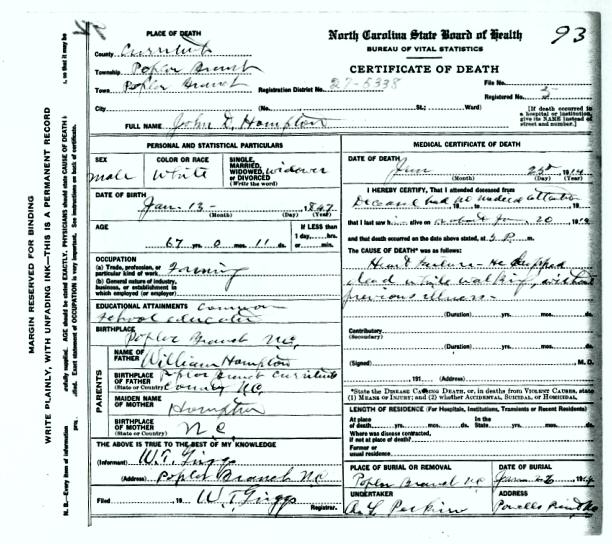 93
PLACE OF DEATH
County Currituck
Township Poplar Branch
Town Poplar Branch
Registration District No. 27-5338
City
(No. St.; Ward)
FULL NAME John T. Hampton
North Carolina State Board of Health
BUREAU OF VITAL STATISTICS
CERTIFICATE OF DEATH
File No.
Registered No. 5
[If death occurred in
a hospital or institution,
give its NAME instead of
street and number.]
PERSONAL AND STATISTICAL PARTICULARS
SEX
male
COLOR OR RACE
White
SINGLE,
MARRIED,
WIDOWED,
OR DIVORCED
(Write the word)
widower
DATE OF BIRTH
Jan. 13 - 1847
(Month) (Day) (Year)
AGE
67 yrs. 0 mos. 11 ds.
If LESS than
1 day, hrs.
or min.
OCCUPATION
(a) Trade, profession, or
particular kind of work farming
(b) General nature of industry,
business, or establishment in
which employed (or employer)
EDUCATIONAL ATTAINMENTS Common
School
BIRTHPLACE
Poplar Branch N.C.
PARENTS
NAME OF
FATHER William Hampton
BIRTHPLACE
OF FATHER
(State or Country)
Poplar Branch Currituck
County N.C.
MAIDEN NAME
OF MOTHER Hampton
BIRTHPLACE
OF MOTHER
(State or Country)
N C
THE ABOVE IS TRUE TO THE BEST OF MY KNOWLEDGE
(Informant) W.T. Griggs
(Address) Poplar Branch N.C.
Filed , 19 W T Griggs
Registrar.
MEDICAL CERTIFICATE OF DEATH
DATE OF DEATH
Jan 25th 1914
(Month) (Day) (Year)
I HEREBY CERTIFY, That I attended deceased from
Deceased had no medical attention
that I last saw h alive on Jan. 20 1914
and that death occurred on the date above stated, at 3 P. m.
The CAUSE OF DEATH* was as follows:
Heart failure - He dropped
dead while walking, without
previous illness -
(Duration) yrs. mos. ds.
Contributory
(Secondary)
(Duration) yrs. mos. ds.
(Signed) M. D.
191 (Address)
*State the DISEASE CAUSING DEATH, or, in deaths from VIOLENT CAUSES, state
(1) MEANS OF INJURY; and (2) whether ACCIDENTAL, SUICIDAL, or HOMICIDAL
LENGTH OF RESIDENCE (For Hospitals, Institutions, Transients or Recent Residents)
At place
of death yrs. mos. ds.
In the
State yrs. mos. ds.
Where was disease contracted,
if not at place of death?
Former or
usual residence
PLACE OF BURIAL OR REMOVAL
Poplar Branch N.C
DATE OF BURIAL
1914
UNDERTAKER
Perkins
ADDRESS
Powells Point N.C
MARGIN RESERVED FOR BINDING
WRITE PLAINLY, WITH UNFADING INK—THIS IS A PERMANENT RECORD
N. B.—Every item of information
AGE should be stated EXACTLY. PHYSICIANS should state CAUSE OF DEATH
Exact statement of OCCUPATION is very important. See instructions on back of certificate.